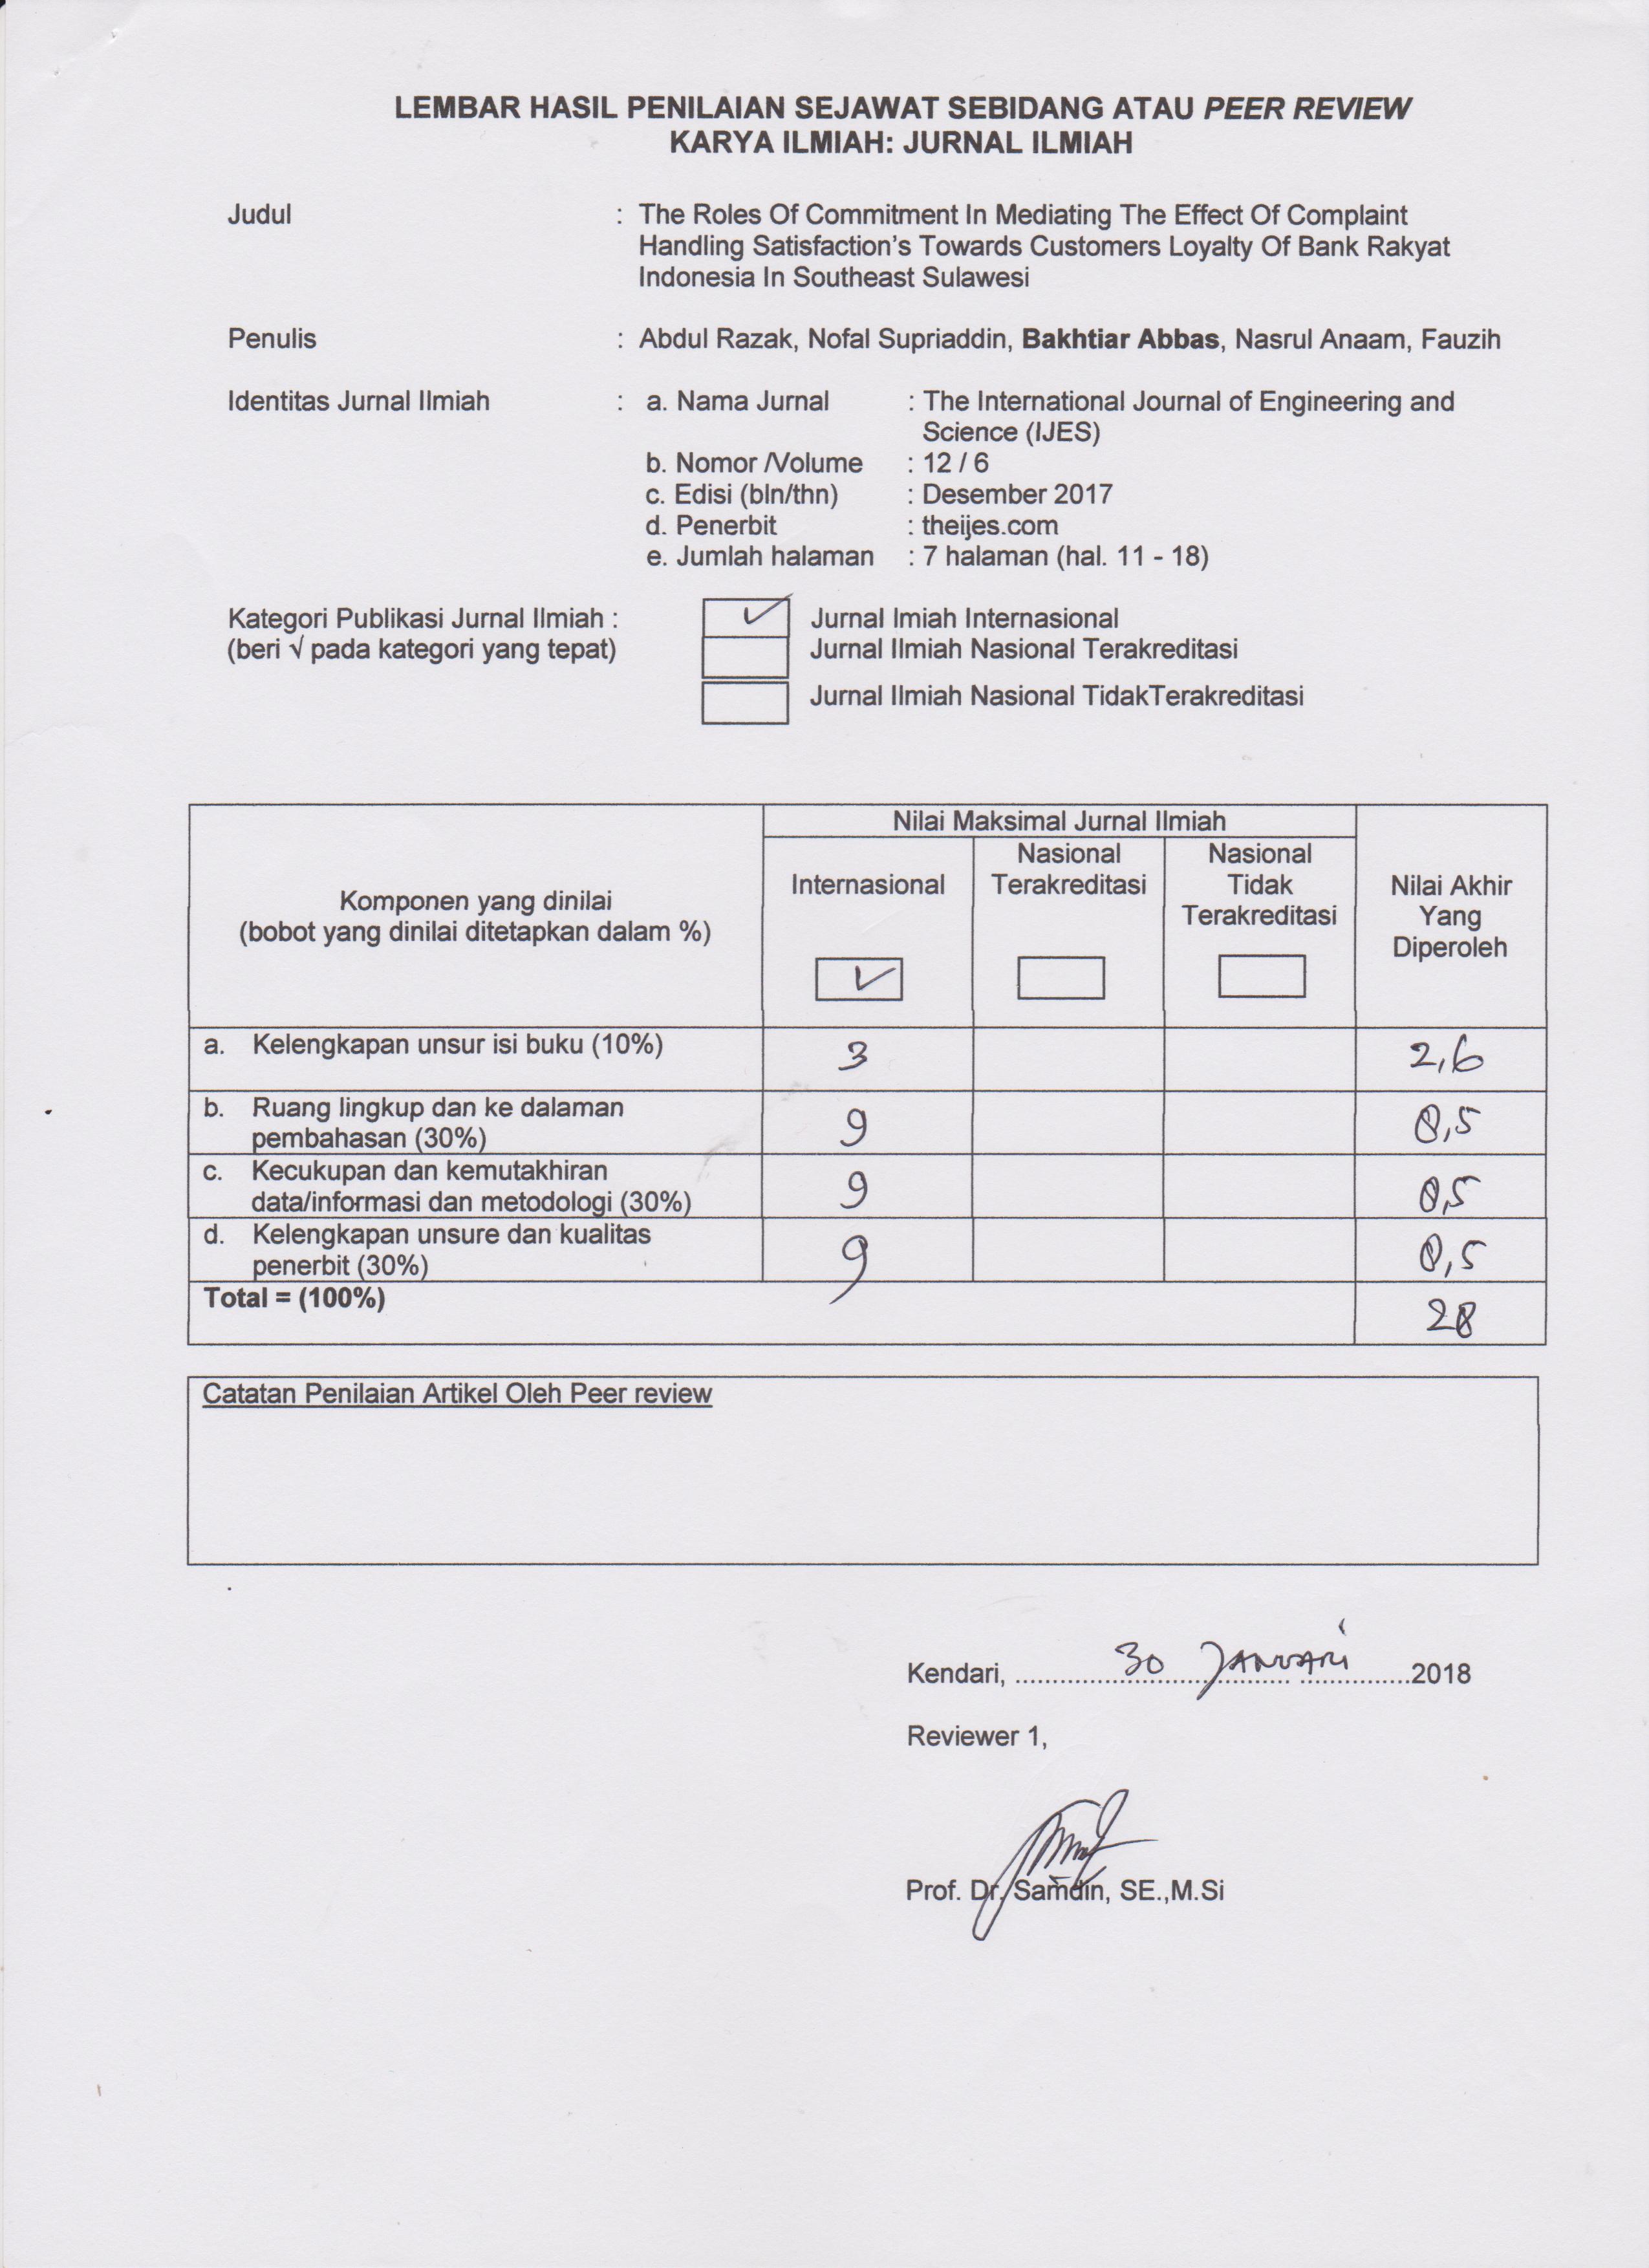 LEMBAR HASIL PENILAIAN SEJAWAT SEBIDANG ATAU PEER REVIEW
KARYA ILMIAH: JURNAL ILMIAH
Judul : The Roles Of Commitment In Mediating The Effect Of Complaint
Handling Satisfaction's Towards Customers Loyalty Of Bank Rakyat
Indonesia In Southeast Sulawesi
Penulis : Abdul Razak, Nofal Supriaddin, Bakhtiar Abbas, Nasrul Anaam, Fauzih
Identitas Jurnal Ilmiah : a. Nama Jurnal : The International Journal of Engineering and
Science (IJES)
b. Nomor /Volume : 12 / 6
c. Edisi (bln/thn) : Desember 2017
d. Penerbit : theijes.com
e. Jumlah halaman : 7 halaman (hal. 11 - 18)
Kategori Publikasi Jurnal Ilmiah : ✓ Jurnal Imiah Internasional
(beri √ pada kategori yang tepat) Jurnal Ilmiah Nasional Terakreditasi
Jurnal Ilmiah Nasional TidakTerakreditasi
Komponen yang dinilai
(bobot yang dinilai ditetapkan dalam %)
Nilai Maksimal Jurnal Ilmiah
Internasional
✓
Nasional
Terakreditasi
Nasional
Tidak
Terakreditasi
Nilai Akhir
Yang
Diperoleh
a. Kelengkapan unsur isi buku (10%) 3 2,6
b. Ruang lingkup dan ke dalaman
pembahasan (30%) 9 8,5
c. Kecukupan dan kemutakhiran
data/informasi dan metodologi (30%) 9 8,5
d. Kelengkapan unsure dan kualitas
penerbit (30%) 9 8,5
Total = (100%) 28
Catatan Penilaian Artikel Oleh Peer review
Kendari, 30 JANUARI 2018
Reviewer 1,
Prof. Dr. Samdin, SE.,M.Si